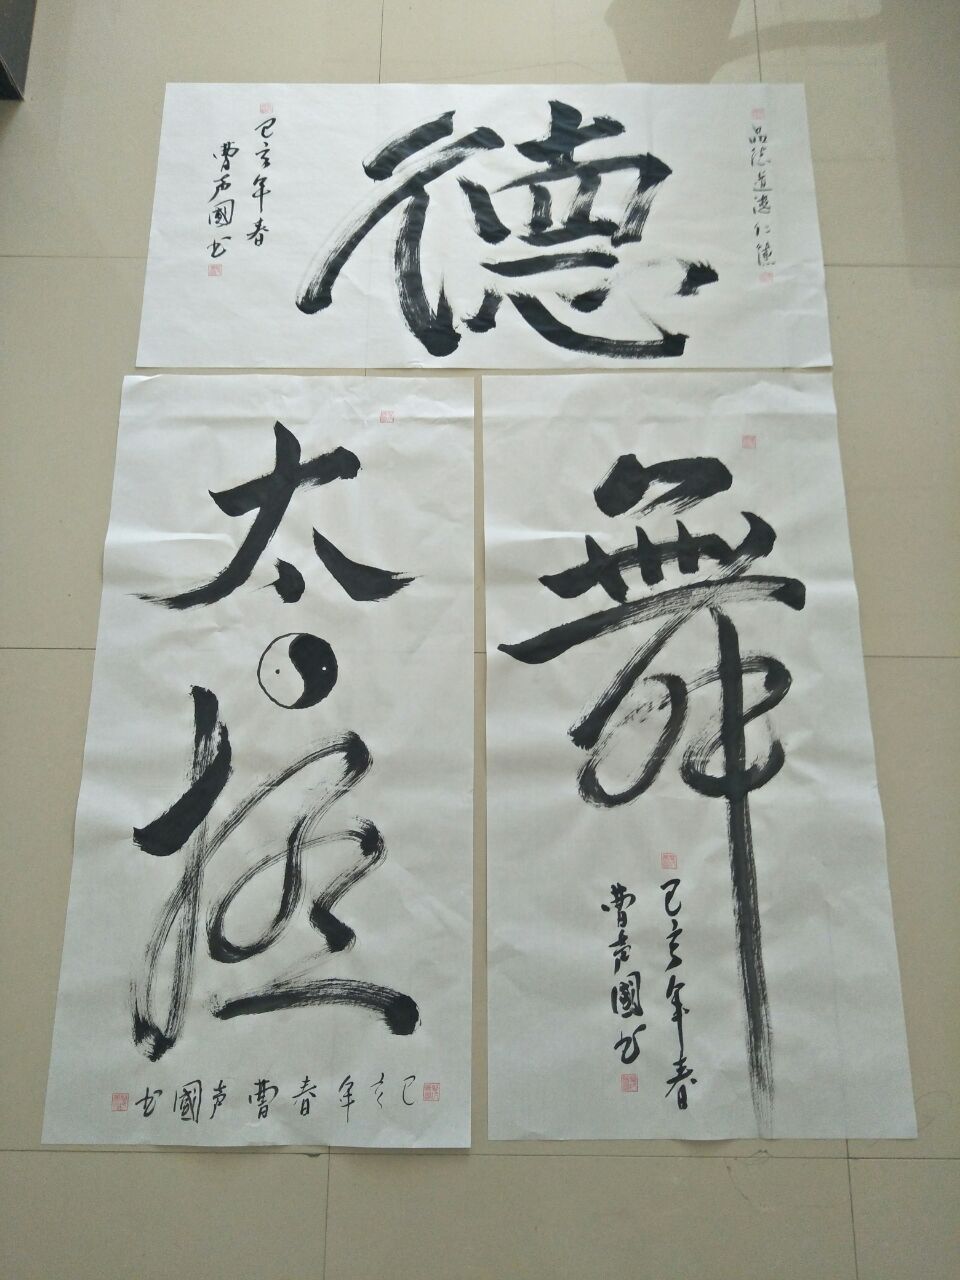 品德道德仁德
德
己亥年春
曹声國书
太极
己亥年春曹声國书
舞
己亥年春
曹声國书